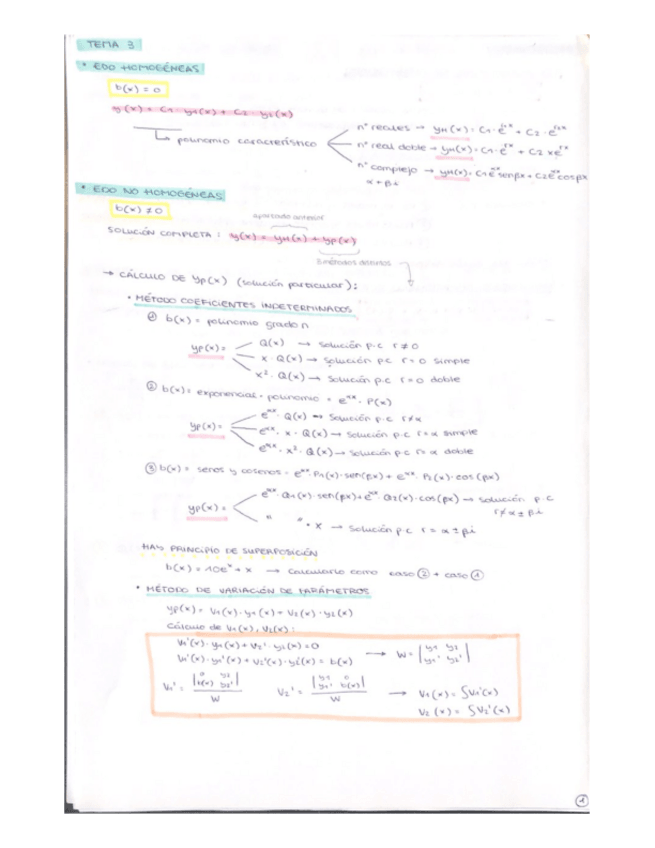 TEMA 3
* EDO HOMOGÉNEAS
b(x) = 0
y(x) = C1 · y1(x) + C2 · y2(x)
nº reales → yH(x) = C1 · e^rx + C2 · e^rx
↳ polinomio característico
nº real doble → yH(x) = C1 · e^rx + C2 x e^rx
nº complejo → yH(x) = C1 e^αx senβx + C2 e^αx cosβx
α + βi
* EDO NO HOMOGÉNEAS
b(x) ≠ 0
apartado anterior
SOLUCIÓN COMPLETA: y(x) = yH(x) + yp(x)
→ CÁLCULO DE yp(x) (solución particular):
• MÉTODO COEFICIENTES INDETERMINADOS
① b(x) = polinomio grado n
yp(x) =
Q(x) → solución p.c r ≠ 0
x · Q(x) → solución p.c r = 0 simple
x² · Q(x) → solución p.c r = 0 doble
② b(x) = exponencial · polinomio = e^αx · P(x)
yp(x) =
e^αx · Q(x) → solución p.c r ≠ α
e^αx · x · Q(x) → solución p.c r = α simple
e^αx · x² · Q(x) → solución p.c r = α doble
③ b(x) = senos y cosenos = e^αx · P1(x) · sen(βx) + e^αx · P2(x) · cos(βx)
yp(x) =
e^αx · Q1(x) · sen(βx) + e^αx · Q2(x) · cos(βx) → solución p.c
r ≠ α ± βi
" " · x → solución p.c r = α ± βi
HAY PRINCIPIO DE SUPERPOSICIÓN
b(x) = 10e^x + x → calcularlo como caso ② + caso ①
• MÉTODO DE VARIACIÓN DE PARÁMETROS
yp(x) = V1(x) · y1(x) + V2(x) · y2(x)
Cálculo de V1(x), V2(x):
V1'(x) · y1(x) + V2' · y2(x) = 0
V1'(x) · y1'(x) + V2'(x) · y2'(x) = b(x)
→ W = |y1 y2|
|y1' y2'|
V1' = |0 y2| |b(x) y2'| / W
V2' = |y1 0| |y1' b(x)| / W
→ V1(x) = ∫V1'(x)
V2(x) = ∫V2'(x)
①